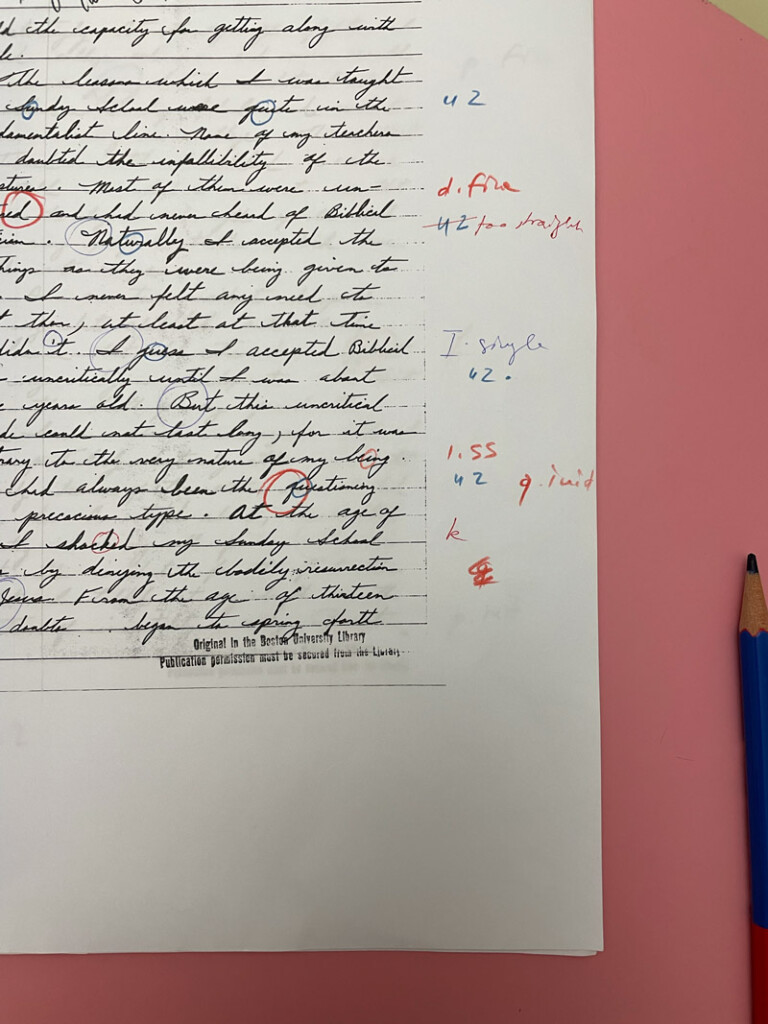 the capacity for getting along with
The lessons which I was taught
Sunday School were quite in the
damentalist line. None of my teachers
doubted the infallibility of the
Most of them were un-
and had never heard of Biblical
Naturally I accepted the
as they were being given to
I never felt any need to
them, at least at that time
didn't. I guess I accepted Biblical
uncritically until I was about
years old. But this uncritical
could not last long, for it was
to the very nature of my being.
had always been the questioning
precocious type. At the age of
I shocked my Sunday School
by denying the bodily resurrection
Jesus From the age of thirteen
doubts began to spring forth
Original in the Boston University Library
Publication permission must be secured from the Library
u 2
d. fine
u 2 too straight
I. single
u 2.
1. SS
u 2 q. init
k